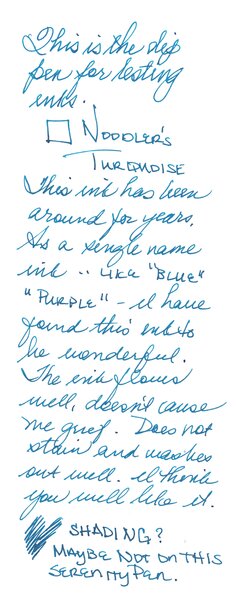 This is the dip
pen for testing
inks.
NOODLER'S
TURQUOISE
This ink has been
around for years.
As a single name
ink -- LIKE "BLUE"
"PURPLE" - I have
found this ink to
be wonderful.
The ink flows
well, doesn't cause
me grief. Does not
stain and washes
out well. I think
you will like it.
SHADING?
MAYBE NOT ON THIS
SERENITY PEN.